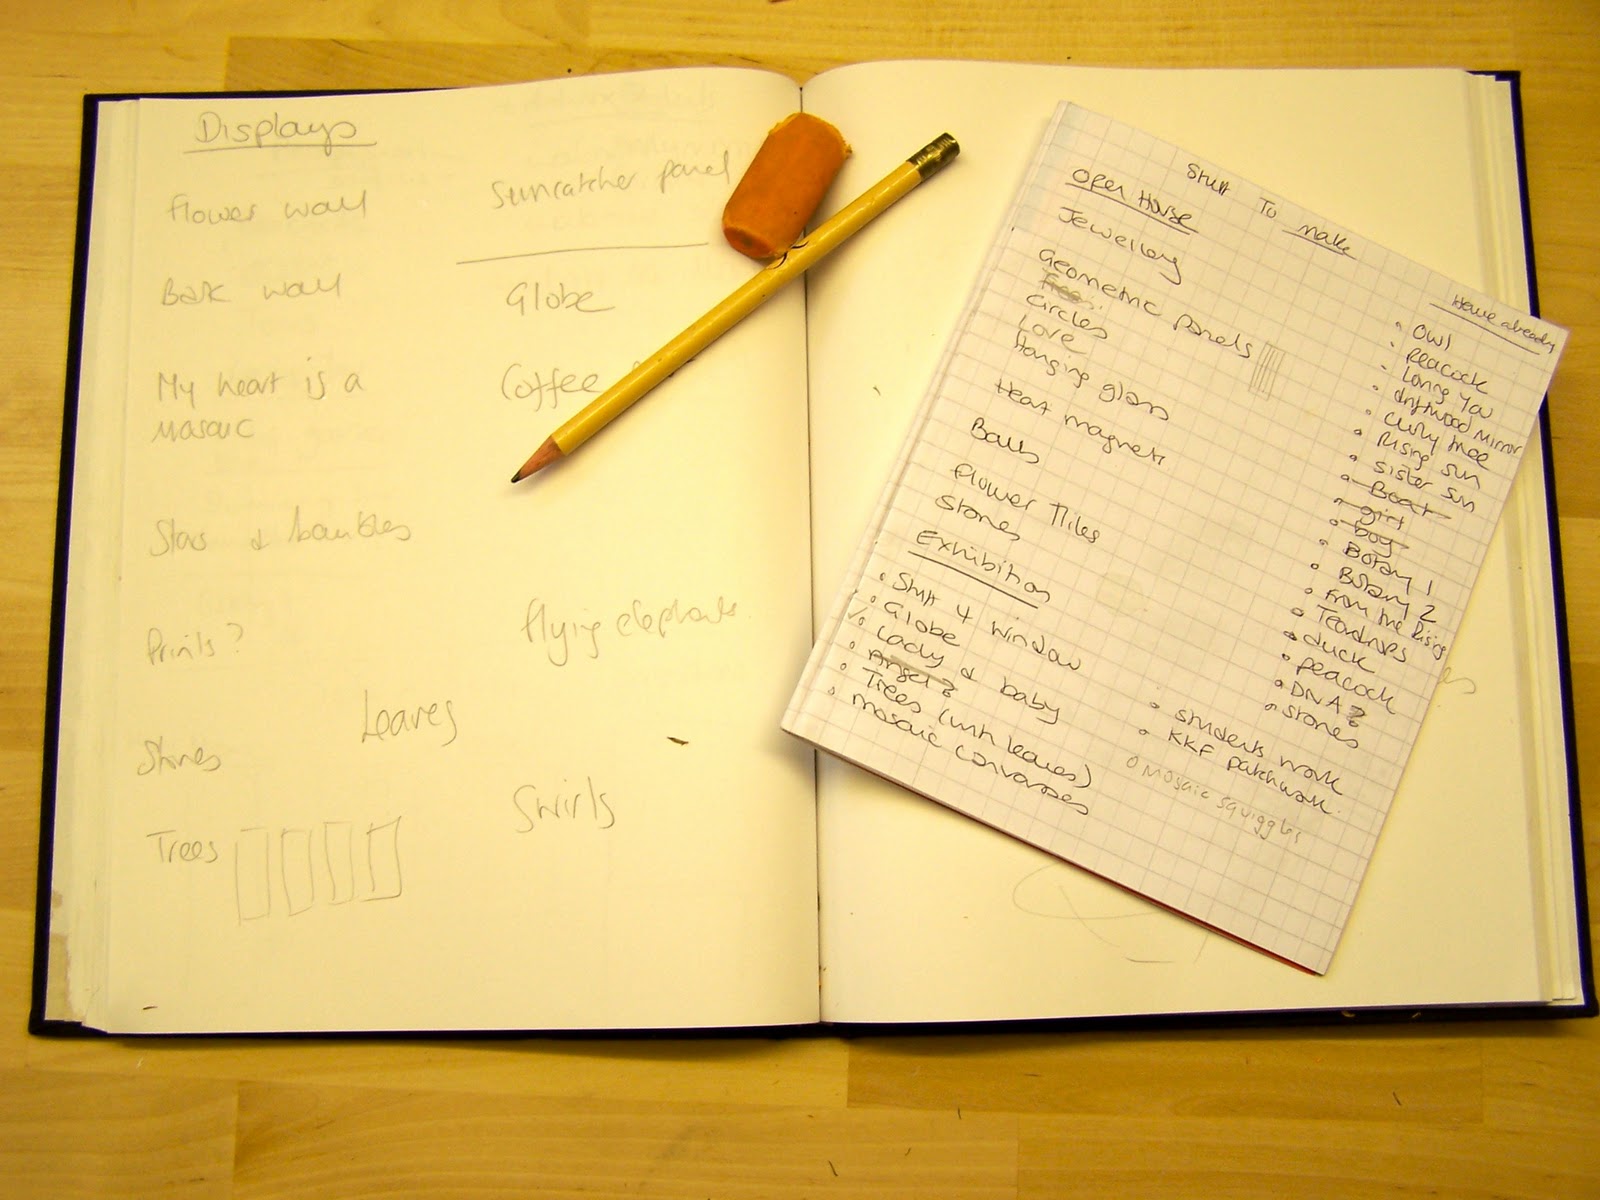 Displays
Flower wall
Back wall
My heart is a
mosaic
Stars & baubles
Prints?
Leaves
Stones
Trees
Suncatcher panel
Globe
Coffee
Flying elephants
Swirls
Stuff To make
Open House
Jewellery
Geometric panels
Circles
Love
Hanging glass
Heart magnets
Balls
Flower Tiles
Stones
Exhibition
Stuff 4 window
Globe
Lady & baby
Angel?
Trees (with leaves)
mosaic canvasses
Have already
Owl
Peacock
Loving You
driftwood mirror
Curly tree
Rising sun
Sister sun
Boat
girl
boy
Botany 1
Botany 2
From the Rising
Teardrops
duck
peacock
DNA?
Stones
students work
KKF patchwork.
mosaic squiggles